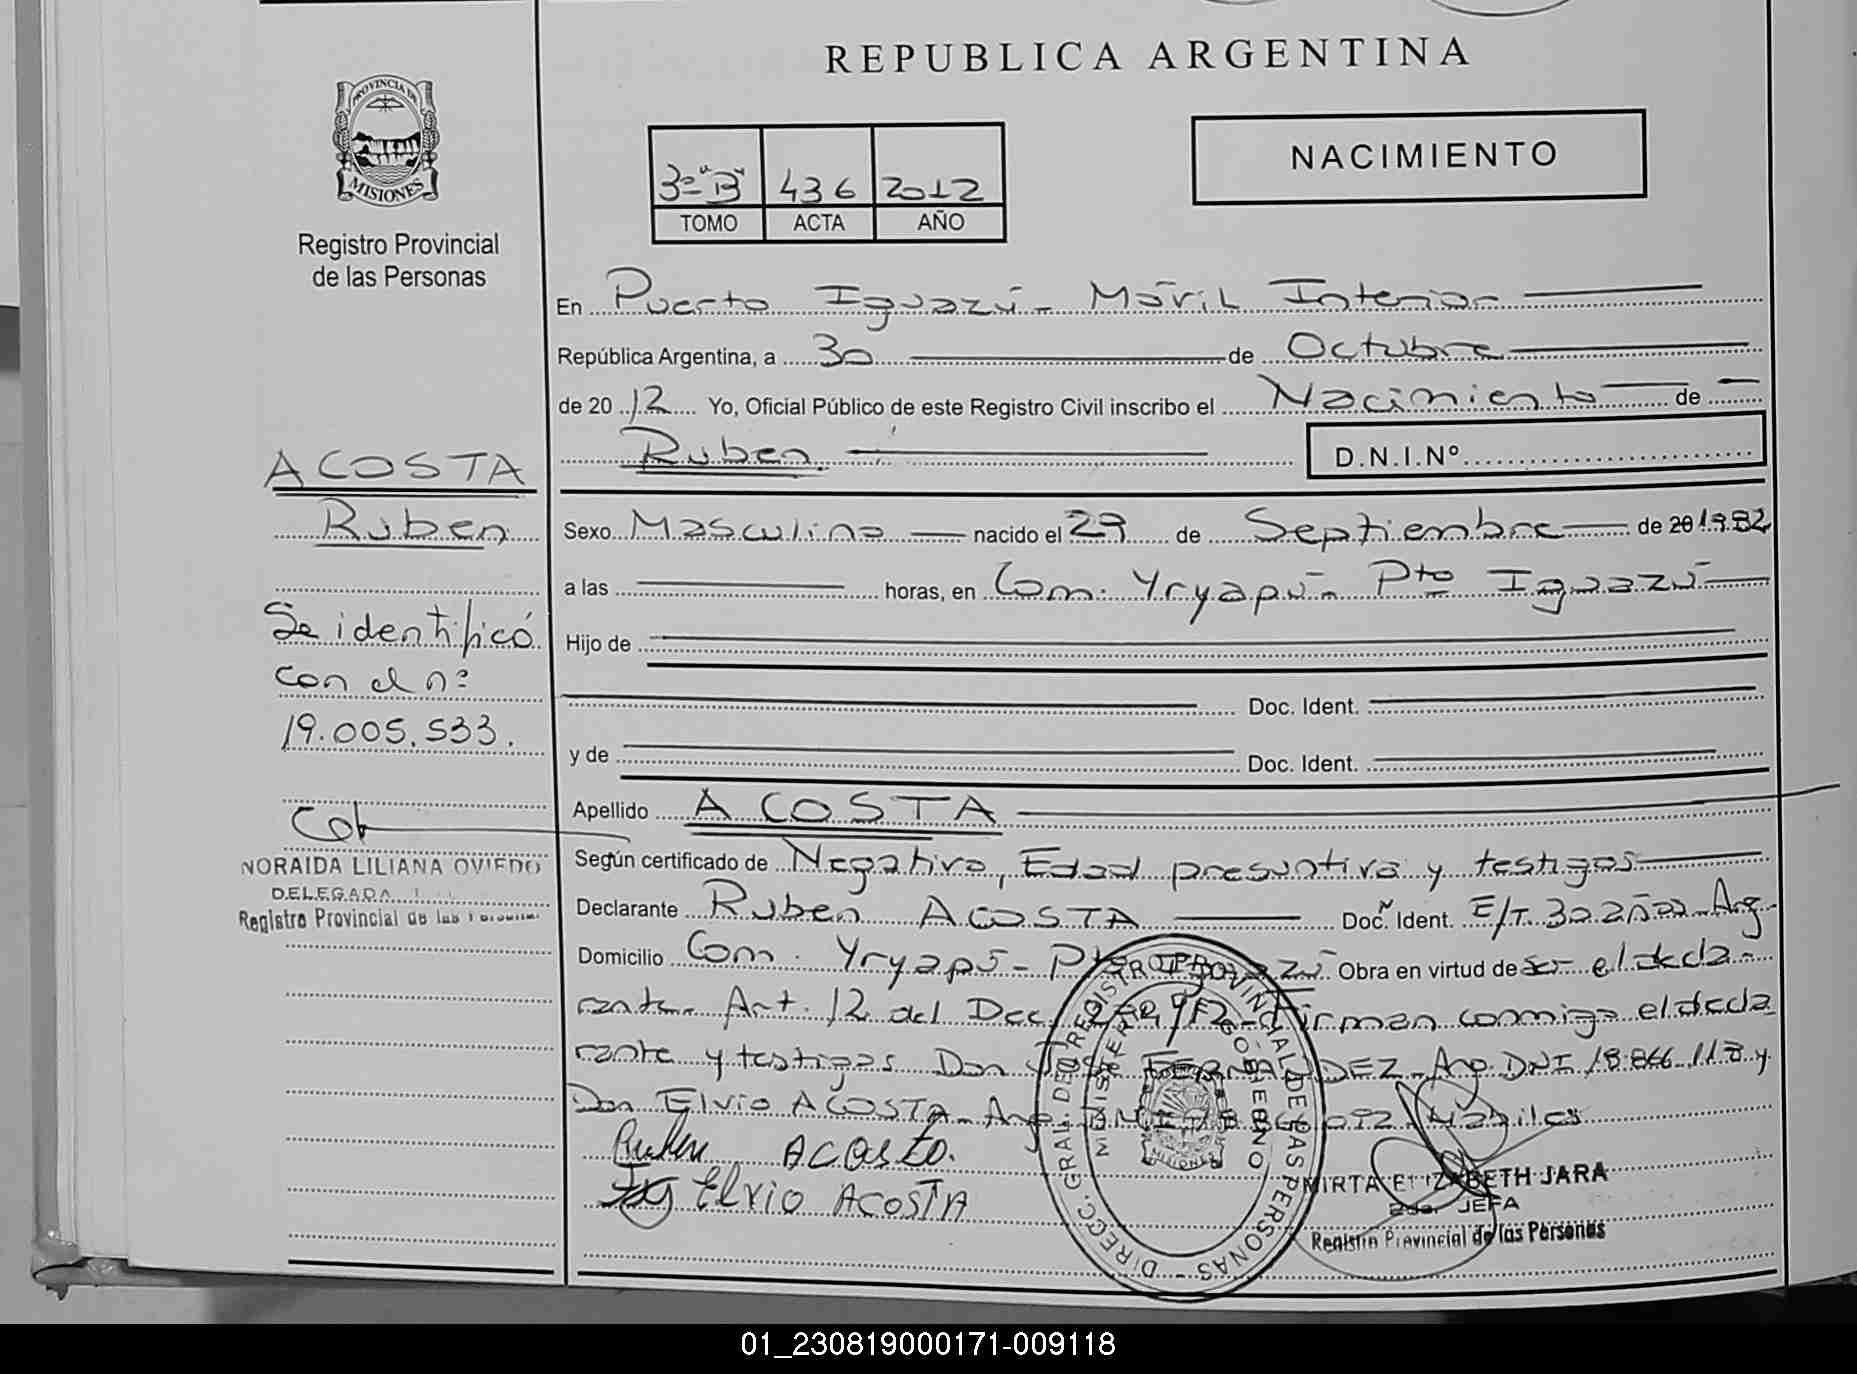 REPUBLICA ARGENTINA
PROVINCIA DE
MISIONES
Registro Provincial
de las Personas
3º "B" 436 2012
TOMO ACTA AÑO
NACIMIENTO
En Puerto Iguazú - Móvil Interior
República Argentina, a 30 de Octubre
de 2012 Yo, Oficial Público de este Registro Civil inscribo el Nacimiento de
Ruben. D.N.I.Nº
ACOSTA
Ruben
Sexo Masculino nacido el 29 de Septiembre de 20 1982
a las horas, en Com. Yryapú - Pto Iguazú
Hijo de
Se identificó
con el nº
19.005.533.
Doc. Ident.
y de Doc. Ident.
Apellido ACOSTA
NORAIDA LILIANA OVIEDO
DELEGADA
Registro Provincial de las
Según certificado de Negativo, Edad presuntiva y testigos
Declarante Ruben ACOSTA Doc. Ident. E/T. Arg-
Domicilio Com. Yryapú - Obra en virtud de ser el decla-
rante. Art. 12 del Dec. Firman conmigo el decla
rante y testigos Don José FERNANDEZ - Arg. DNI 18.866.118 y
Don Elvio ACOSTA - Arg. DNI Habiles
Ruben ACOSTA.
Elvio ACOSTA
DIRECC. GRAL. DEL REGISTRO PROVINCIAL DE LAS PERSONAS
MINISTERIO DE GOBIERNO
MISIONES
MIRTA ELIZABETH JARA
2da. JEFA
Registro Provincial de las Personas
01_230819000171-009118